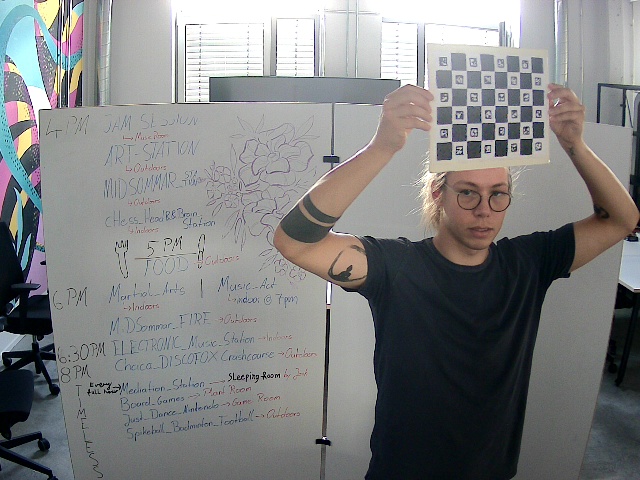 4 PM JAM SESSION
→ Music Room
ART-STATION
→ Outdoors
MIDSOMMAR
→ Outdoors
Station
→ Indoors
5 PM
FOOD → Outdoors
6 PM Martial_Arts | Music_Act
→ Indoors → indoor @ 7pm
MiDSommar_FIRE → Outdoors
6:30PM ELECTRONIC_Music_Station → Indoors
8PM Choica_DISCOFOX Crashcourse → Outdoors
Every full hour → Mediation_Station → SLEEPING Room by
Board_Games → Plant Room
Just_Dance_Nintendo → Game Room
Spikeball_Badminton_Football → Outdoors
TIMELESS